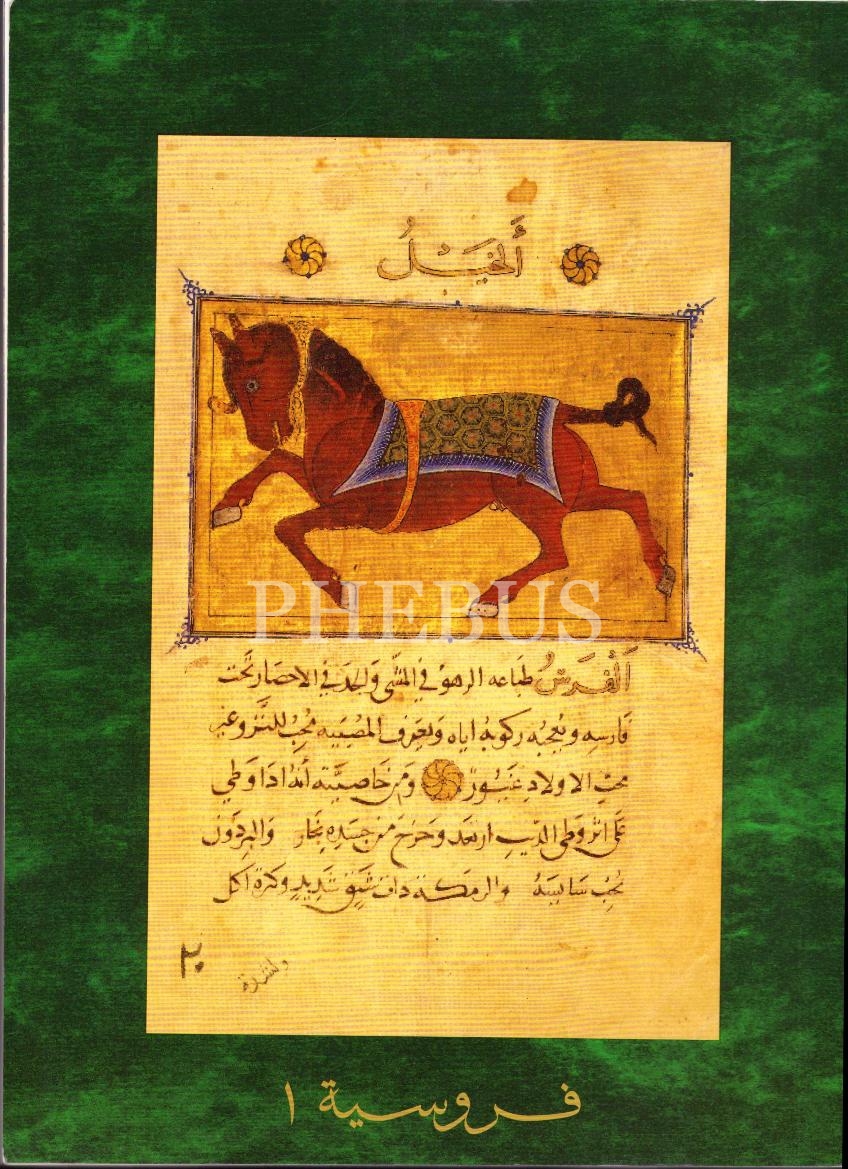 أَلخَيْلُ
PHEBUS
اَلْفَرَسُ طباعه الزهو في المشي و في الاحضار تحت
فارسه ويعجبه ركوبه اياه ويعرف المصيبه محب للنزو غير
محب الاولاد غيور ومن خاصيته أنه اذا وطي
على اثر وطي الذيب ارتعد وخرج من جسده بخار والبرذون
يحب سايسه والرمكة ذات شبق شديد وكثرة اكل
٢٠
ولشدة
فروسية ١